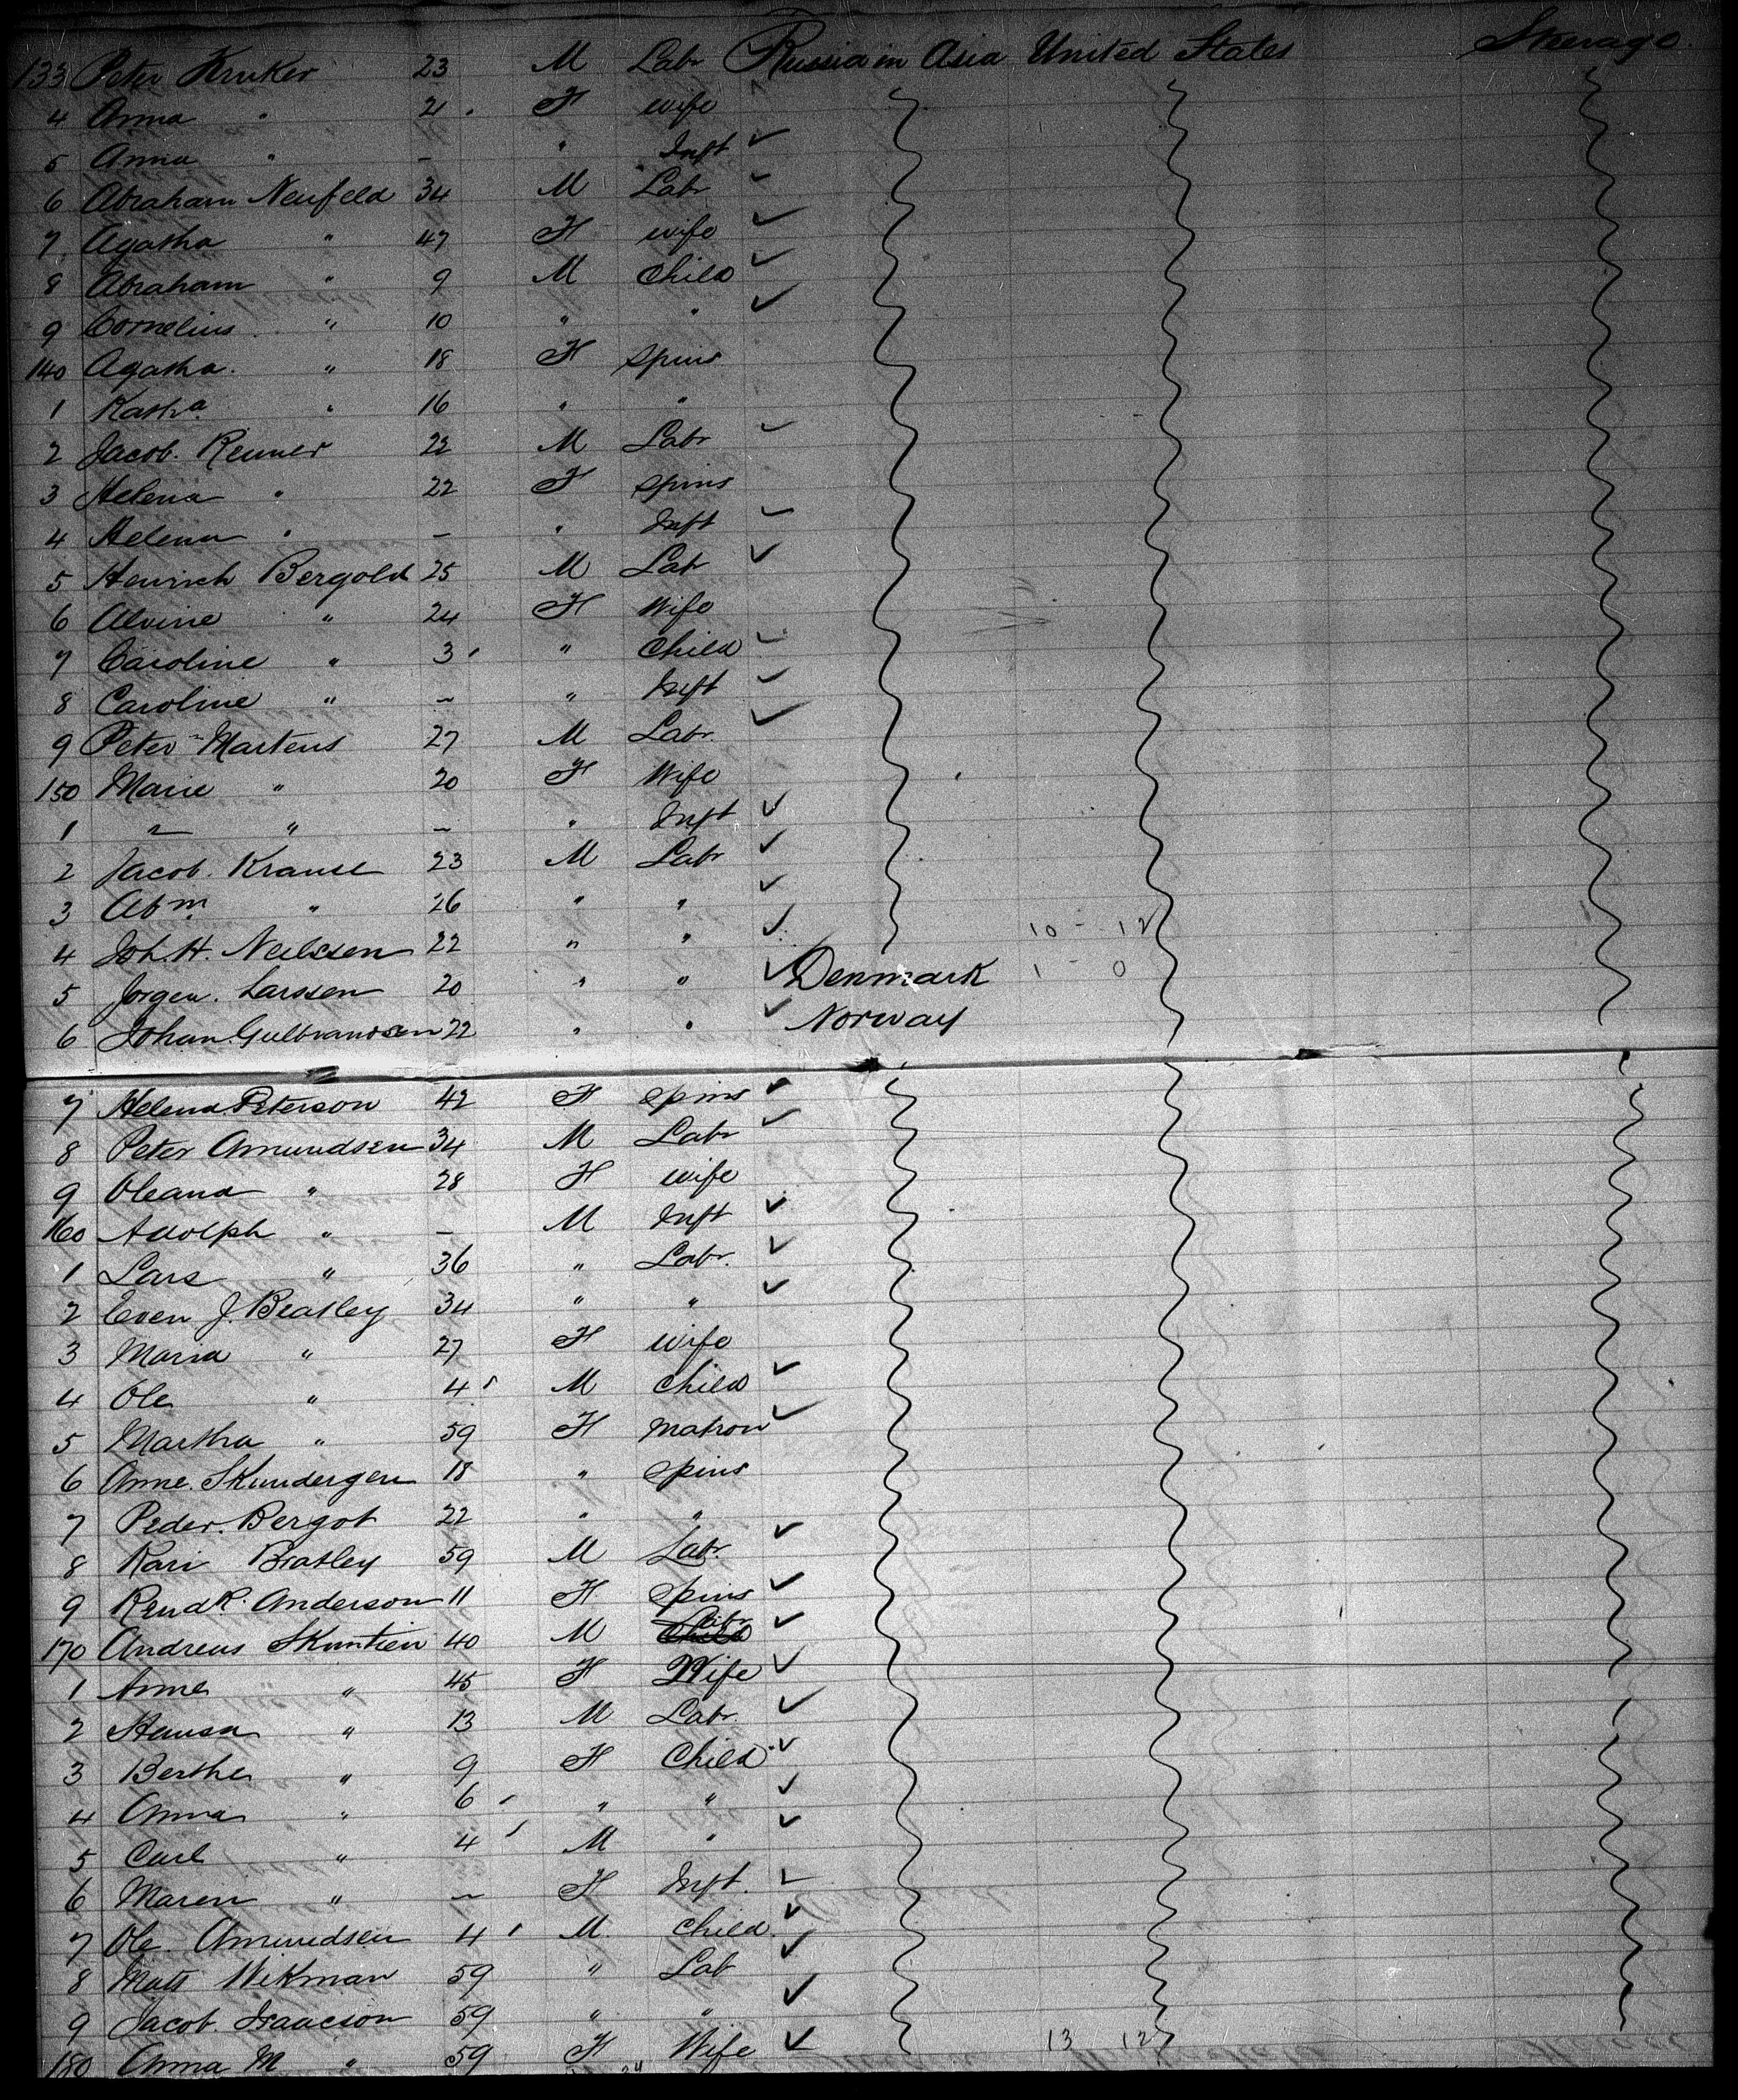 133 Peter Kruker 23 M Labr Russia in Asia United States Steerage
4 Anna " 21 F wife
5 Anna " – " Inft
6 Abraham Neufeld 34 M Labr
7 Agatha " 47 F wife
8 Abraham " 9 M Child
9 Cornelius " 10 " "
140 Agatha " 18 F Spins
1 Katha " 16 " "
2 Jacob Renner 22 M Labr
3 Helena " 22 F Spins
4 Helena " – " Inft
5 Henrich Bergold 25 M Lab
6 Alvine " 24 F Wife
7 Caroline " 3 " Child
8 Caroline " – " Inft
9 Peter Martens 27 M Labr
150 Marie " 20 F Wife
1 " " – " Inft
2 Jacob Krause 23 M Labr
3 Abm " 26 " "
4 Joh H. Neilssen 22 " " 10 - 12
5 Jorgen Larssen 20 " " Denmark 1 - 0
6 Johan Gulbrandsen 22 " " Norway
7 Helena Peterson 42 F Spins
8 Peter Amundsen 34 M Labr
9 Oleana " 28 F wife
160 Adolph " – M Inft
1 Lars " 36 " Labr.
2 Even J. Beatley 34 " "
3 Maria " 27 F wife
4 Ole " 4 M Child
5 Martha " 59 F Matron
6 Anne Skundergen 18 " Spins
7 Peder Bergot 22 " "
8 Kari Bratley 59 M Labr.
9 R. Anderson 11 F Spins
170 Andreas Skuntien 40 M Labr
1 Anne " 45 F Wife
2 Hansa " 13 M Labr.
3 Berthe " 9 F Child
4 Anna " 6 " "
5 Carl " 4 M "
6 Maren " – F Inft.
7 Ole Amundsen 4 M. Child
8 Matts Wikman 59 " Lab
9 Jacob Isaacson 59 " "
180 Anna M " 59 F Wife 13 12